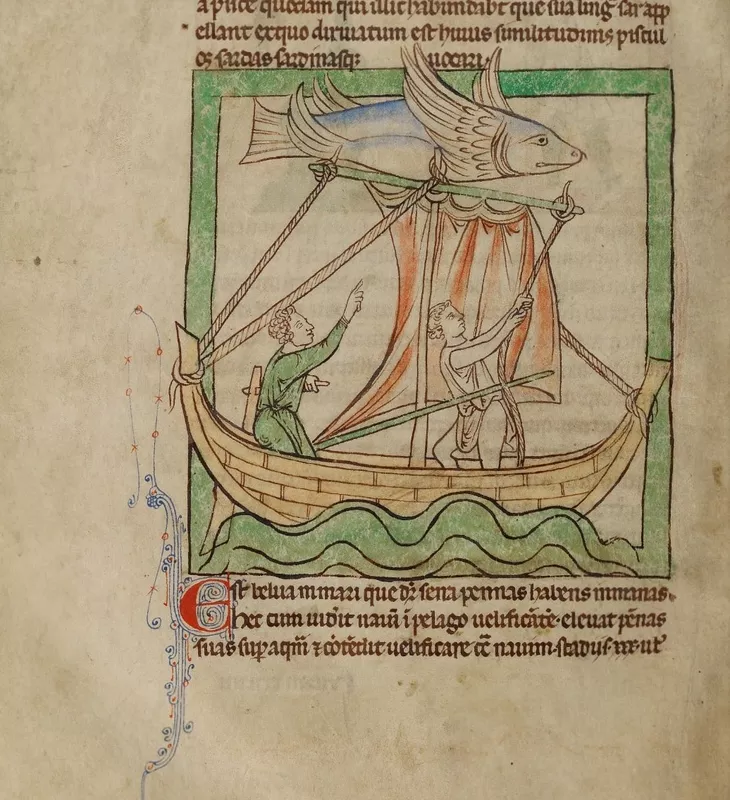 a pisce quodam qui illic habundabt que sua ling' sar app
ellant exquo diriuatum est huius similitudinis piscul
os sardas sardinasq; uocari.
Est belua in mari que dr̄ serra pennas habens inmanas.
hec cum uidit nauē i pelago uelificātē. eleuat pēnas
suas suꝑ aqm̄ ⁊ cōtēdit uelificare cō nauim. stadijs. xxx. ut